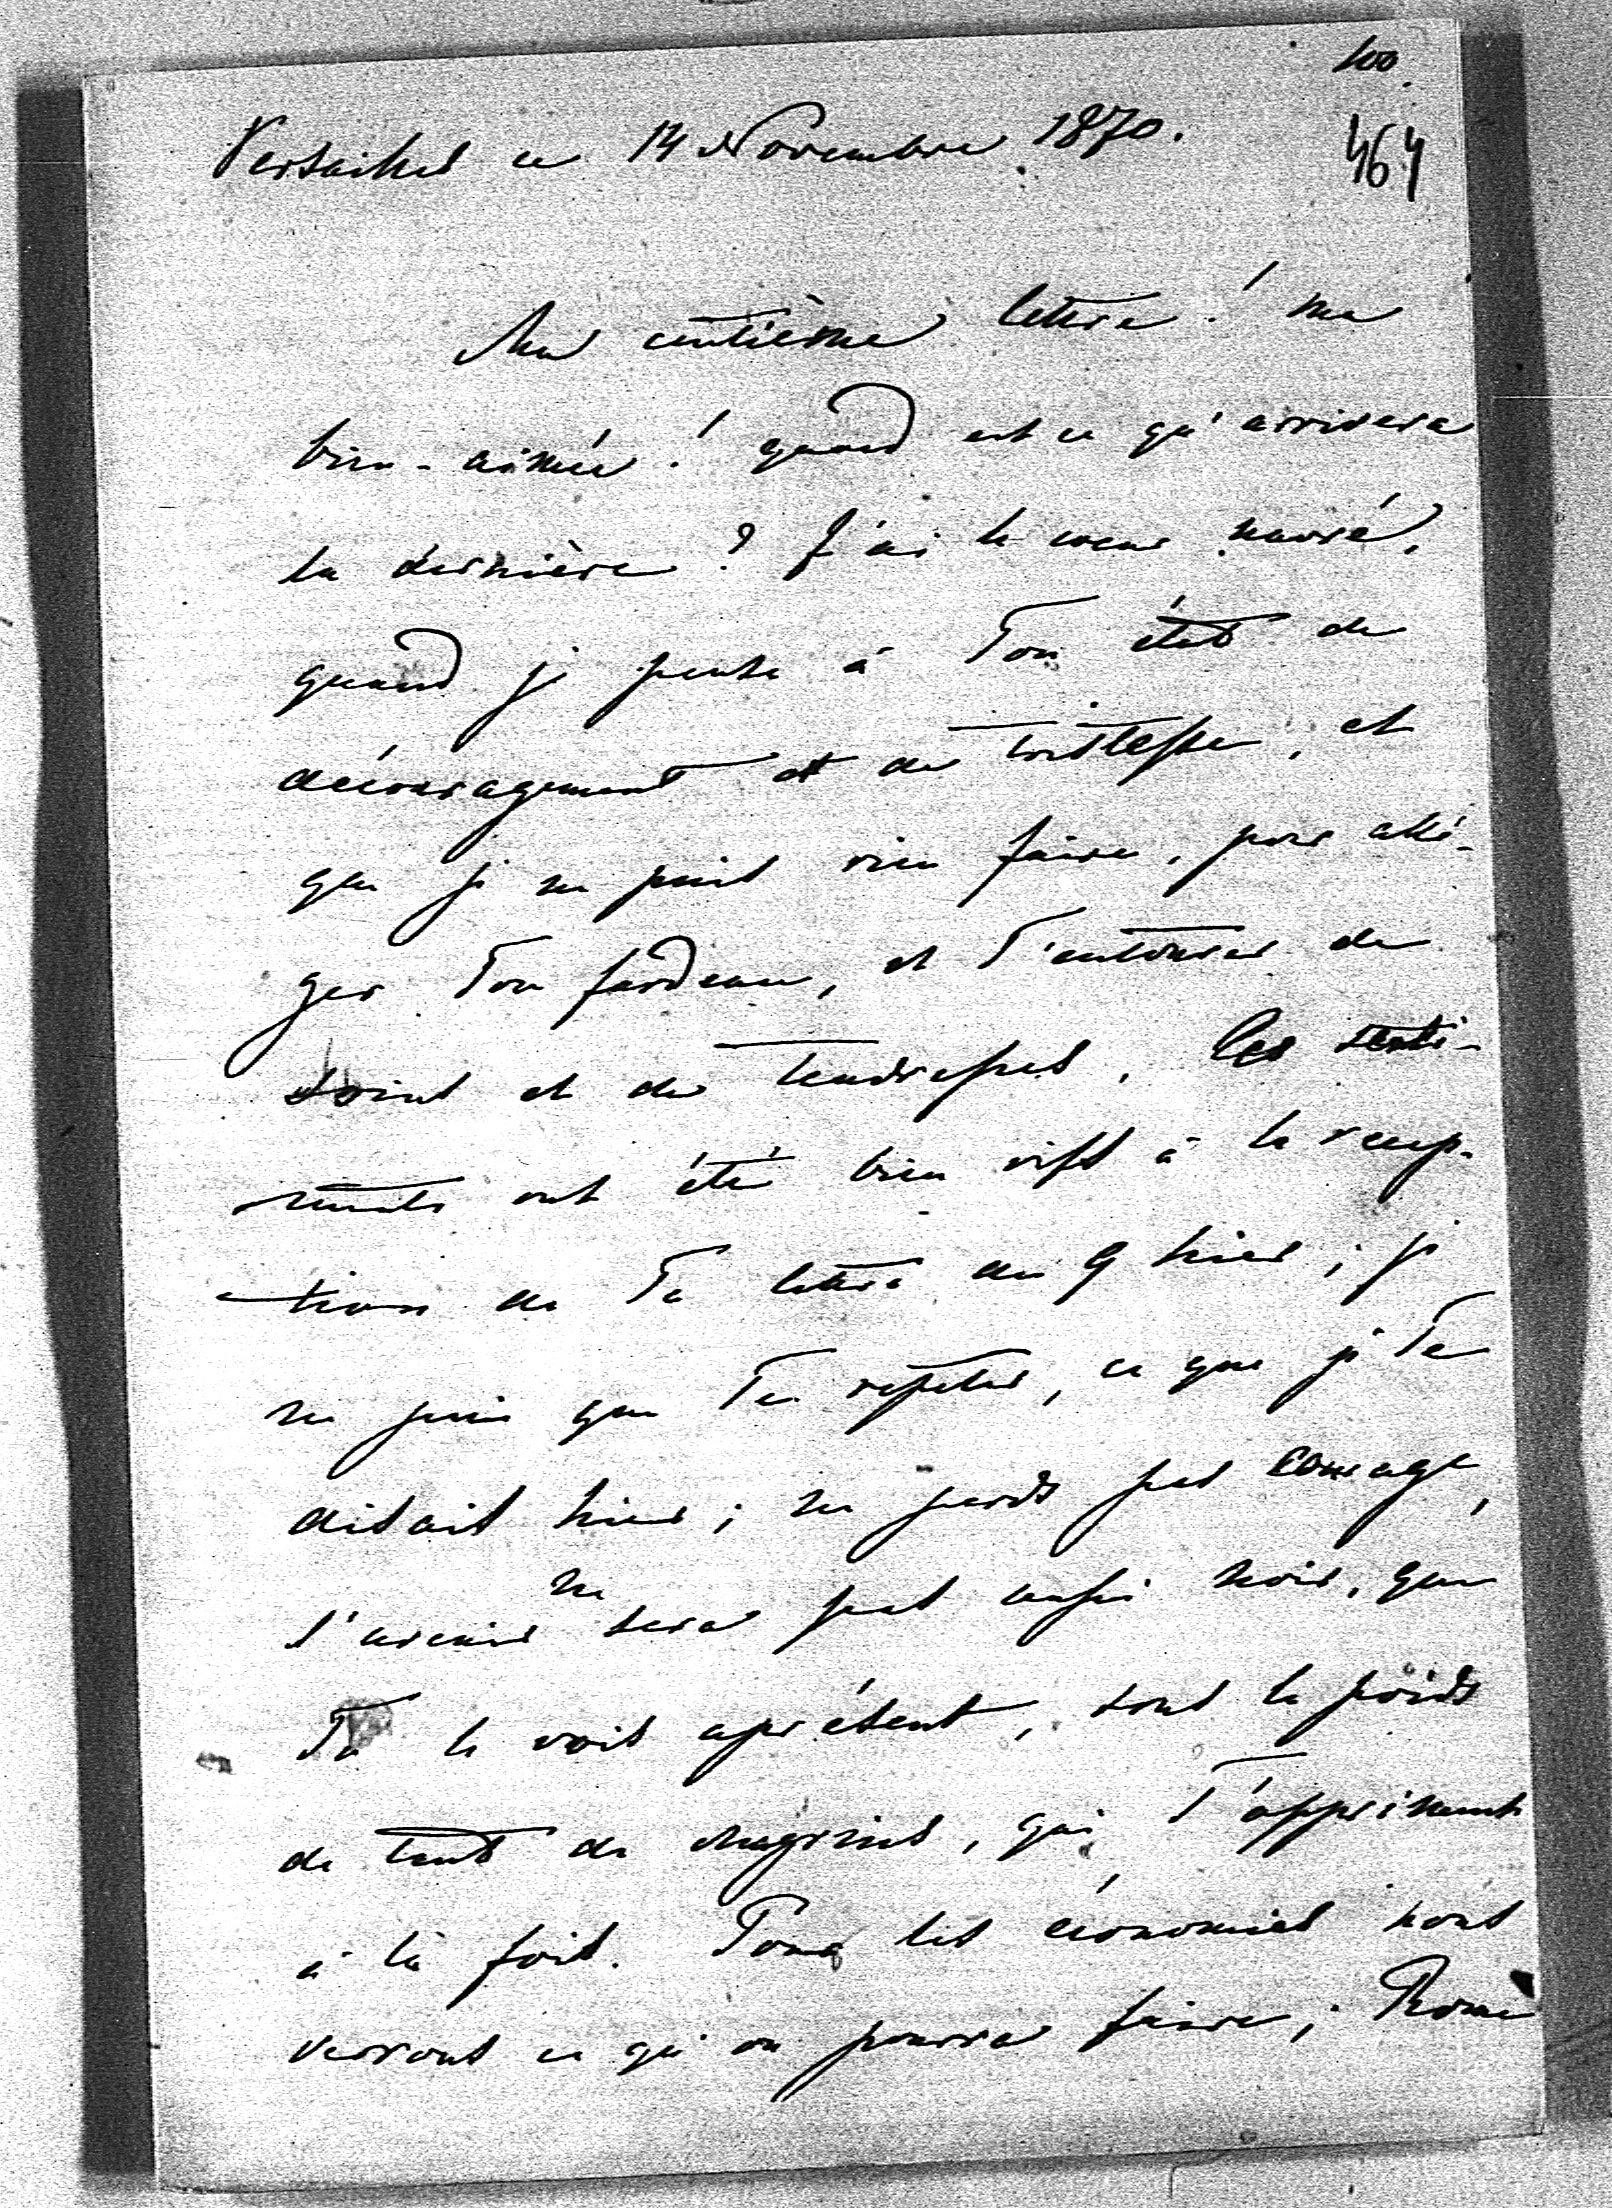 100.
464
Versailles ce 14 Novembre 1870.
Ma centième lettre! ma
bien-aimée! quand est ce qu'arrivera
la dernière? J'ai le coeur navré,
quand je pense à Ton état de
découragement et de tristesse, et
que je ne puis rien faire, pour allé-
ger Ton fardeau, et T'entourer de
soins et de tendresses. Ces senti-
ments ont été bien vifs à la recep-
tion de Ta lettre du 9 hier; je
ne puis que Te repeter, ce que je Te
disais hier; ne perds pas courage,
l'avenir ne sera pas aussi noir, que
Tu le vois aprésent, sous le poids
de tant de chagrins, qui T'oppriment
à la fois. Pour les économies nous
verrons ce qu'on pourra faire;